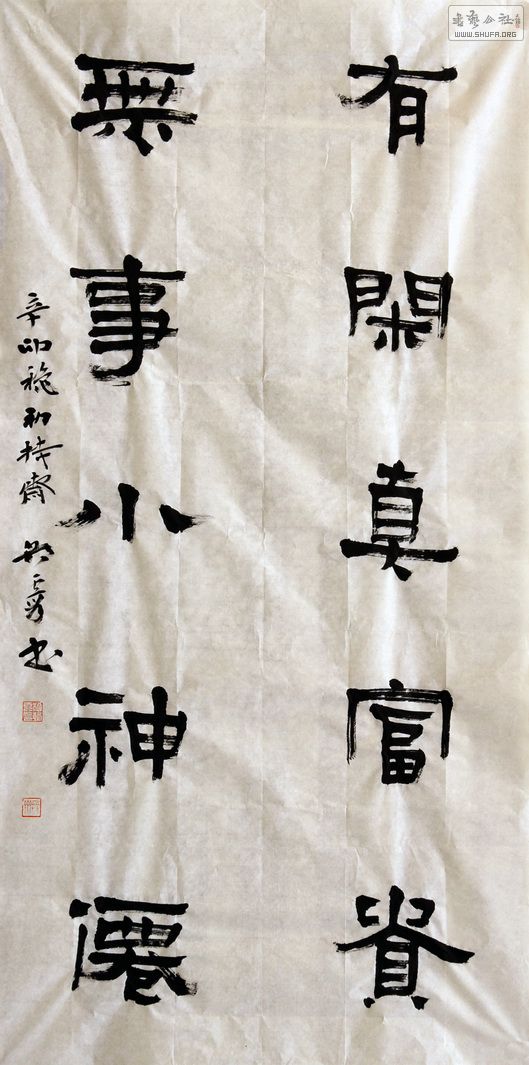 有閑真富貴
無事小神僊
辛卯秋初持齋
書
書藝公社
WWW.SHUFA.ORG